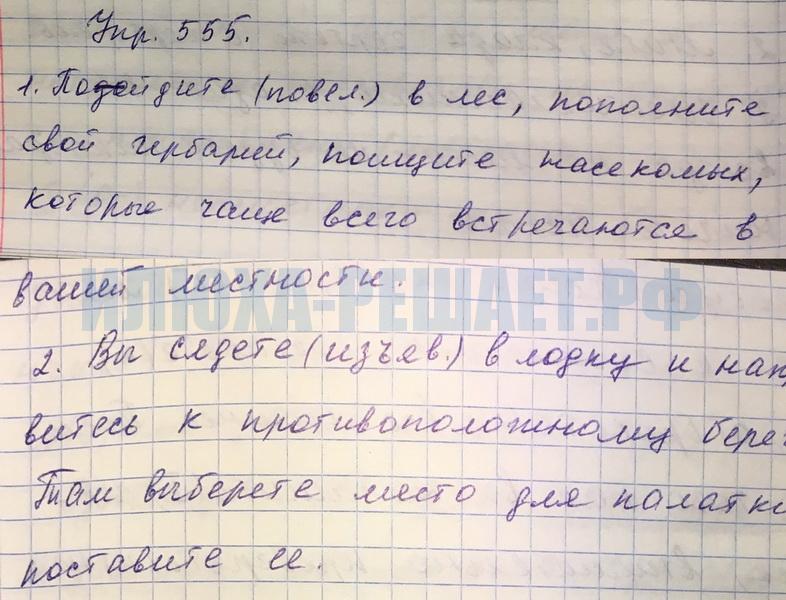 Упр. 555.
1. Подойдите (повел.) в лес, пополните
свой гербарий, поищите насекомых,
которые чаще всего встречаются в
вашей местности.
ИЛЮХА-РЕШАЕТ.РФ
2. Вы сядете (изъяв.) в лодку и нап
витесь к противоположному берег
Там выберете место для палатки
поставите ее.